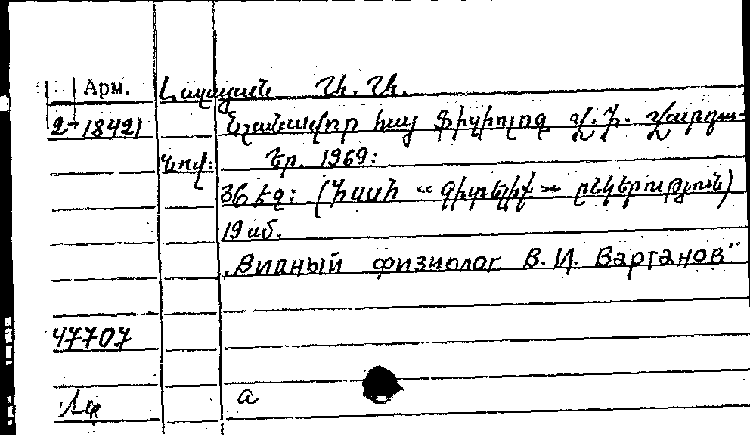 Арм.
2-18421
Նշանավոր հայ ֆիզիոլոգ Վ. Ի. Վարդա-
նով: Եր. 1969:
36 էջ: (ՀՍՍՀ «Գիտելիք» ընկերություն)
19 սմ.
„Видный физиолог В. И. Вартанов"
47707
а